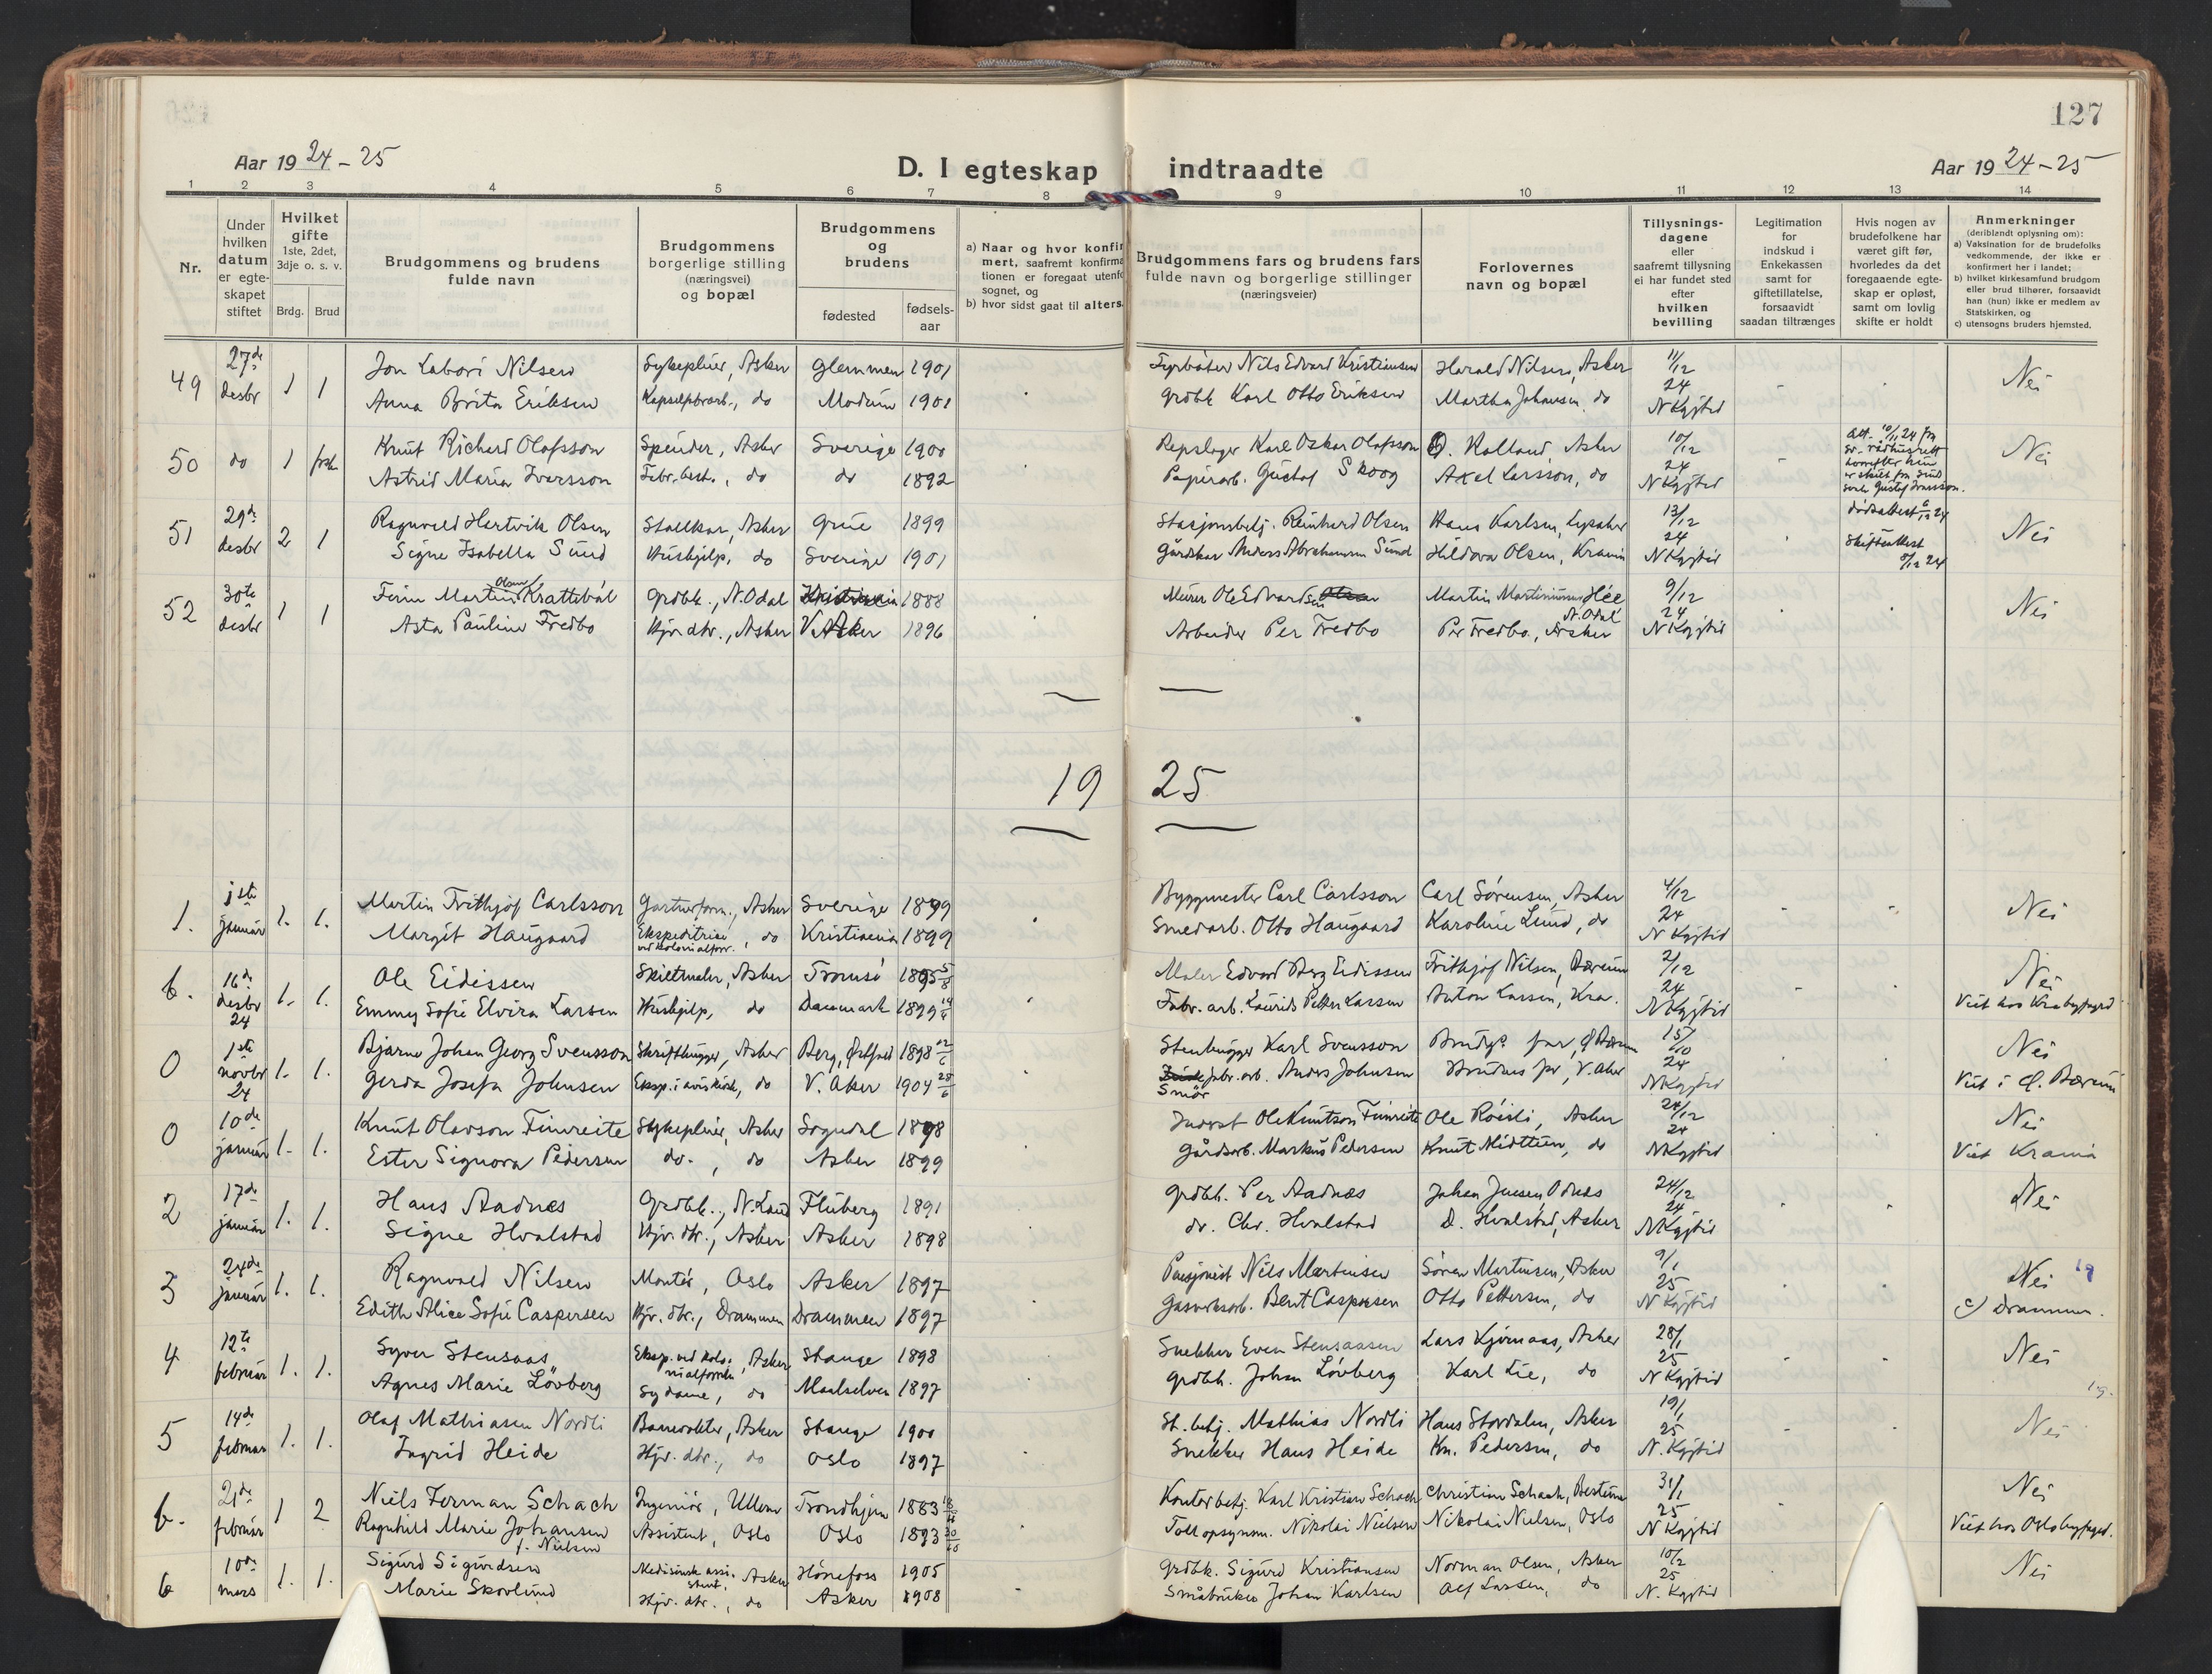 127
Aar 1924-25
D. I egteskap indtraadte
Aar 1924-25
1 2 3 4 5 6 7 8 9 10 11 12 13 14
Nr.
Under hvilken datum er egteskapet stiftet
Hvilket gifte 1ste, 2det, 3dje o. s. v.
Brdg. Brud
Brudgommens og brudens fulde navn
Brudgommens borgerlige stilling (næringsvei) og bopæl
Brudgommens og brudens
fødested
fødsels-aar
a) Naar og hvor konfir
mert, saafremt konfirma
tionen er foregaat utenfo
sognet, og
b) hvor sidst gaat til alters.
Brudgommens fars og brudens fars
fulde navn og borgerlige stillinger
(næringsveier)
Forlovernes
navn og bopæl
Tillysnings-
dagene
eller
saafremt tillysning
ei har fundet sted
efter
hvilken
bevilling
Legitimation
for
indskud i
Enkekassen
samt for
giftetillatelse,
forsaavidt
saadan tiltrænges
Hvis nogen av
brudefolkene har
været gift før,
hvorledes da det
foregaaende egte-
skap er opløst,
samt om lovlig
skifte er holdt
Anmerkninger
(deriblandt oplysning om):
a) Vaksination for de brudefolks
vedkommende, der ikke er
konfirmert her i landet;
b) hvilket kirkesamfund brudgom
eller brud tilhører, forsaavidt
han (hun) ikke er medlem av
Statskirken, og
c) utensogns bruders hjemsted.
49 27de desbr 1 1
Jon Labori Nilsen Sykepleier, Asker Glemmen 1901 Fyrbøter Nils Edvard Kristiansen Harald Nilsen, Asker 11/12 24 Nei
Anna Brita Eriksen do Modum 1901 Grdbk Karl Otto Eriksen Martha Johansen do N Kgjtid
50 do 1 frsk.
Knut Richard Olofsson Asker Sverige 1900 Repslager Karl Oskar Olofsson Kolland, Asker 10/12 24 Nei
Astrid Maria Ivarsson Fabr.best., do do 1892 Papirarb. Gustaf Skoog Axel Larsson, do N Kgjtid
51 29de desbr 2 1
Ragnvald Hartvik Olsen Stallkar, Asker Grue 1899 Stasjonsbetj. Reinhard Olsen Hans Karlsen, Lysaker 13/12 24 dødsattest 6/12 24 Nei
Signe Isabella Sund Hushjelp, do Sverige 1901 Gårdskar Anders Abrahamsen Sund Hildora Olsen, Krania N Kgjtid Skifteattest 8/12 24
52 30te desbr 1 1
Finn Martin Olsen Krattebøl Grdbk., N. Odal Kristiania 1888 Murer Ole Edvardsen Olsen Martin Martiniussen Hee N. Odal 9/12 24 Nei
Asta Pauline Fredbo Hjv. dtr., Asker V. Aker 1896 Arbeider Per Fredbo Per Fredbo, Asker N Kgjtid
19 25
1. 1ste januar 1. 1.
Martin Frithjof Carlsson Gartnerform., Asker Sverige 1899 Byggmester Carl Carlsson Carl Sørensen, Asker 4/12 24 Nei
Margit Haugaard Ekspeditrise ved kolonialforr., do Kristiania 1899 Smedarb. Otto Haugaard Karoline Lund, do N Kgjtid
b. 16de desbr 24 1. 1.
Ole Eidissen Skiltmaler, Asker Tromsø 1895 5/8 Maler Edvard Berg Eidissen Frithjof Nilsen, Bærum 2/12 24 Nei
Emmy Sofie Elvira Larsen Hushjelp, do Danmark 1899 Fabr. arb. Laurids Petter Larsen Anton Larsen, Kra. N Kgjtid Viet hos Krabyfogd
0 1ste novbr 24 1. 1.
Bjarne Johan Georg Svensson Skrifthugger, Asker Berg, Østfold 1898 Stenhugger Karl Svensson Brudg.s far, Ø Bærum 15/10 24 Nei
Gerda Josefa Johnsen Eksp. i aviskiosk, do V. Aker 1904 28/6 Smør fabr. arb. Anders Johnsen Brudens far, V. Aker N Kgjtid Viet i Ø. Bærum
0 10de januar 1. 1.
Knut Olavson Fimreite Sykepleier, Asker Sogndal 1898 Ole Knutson Fimreite Ole Røisli, Asker 24/12 24 Nei
Ester Signora Pedersen do. , do Asker 1899 Gårdsarb. Markus Pedersen Knut Midttun, do N Kgjtid Viet Krania
2 17de januar 1. 1.
Hans Aadnæs Grdbk., N. Land Fluberg 1891 Grdbk. Per Aadnæs Johan Jensen, Odnæs 24/12 24 Nei
Signe Hvalstad Hjv. dtr., Asker Asker 1898 do. Chr. Hvalstad D. Hvalstad, Asker N Kgjtid
3 24de januar 1. 1.
Ragnvald Nilsen Montør, Oslo Asker 1897 Pensjonist Nils Martinsen Søren Martinsen, Asker 9/1 25 Nei
Edith Alice Sofie Caspersen Hjv. dtr., Drammen Drammen 1897 Gasverksarb. Bent Caspersen Otto Pettersen, do N Kgjtid c) Drammen.
4 12te februar 1. 1.
Syver Stensaas Eksp. ved kolonialforretn., Asker Stange 1898 Snekker Even Stensaasen Lars Kjørnaas, Asker 28/1 25 Nei
Agnes Marie Løvberg Sydame, do Maalselven 1897 Grdbk. Johan Løvberg Karl Lie, do N Kgjtid
5 14de februar 1. 1.
Olaf Mathiasen Nordli Banevokter, Asker Stange 1900 St. betj. Mathias Nordli Hans Stordalen, Asker 19/1 25 Nei
Ingrid Heide Hjv. dtr., do Oslo 1897 Snekker Hans Heide Kn. Pedersen, do N. Kgjtid
b. 21de februar 1 2
Niels Forman Schach Ingeniør, Ullern Trondhjem 1883 Kontorbetj. Karl Kristian Schach Christian Schach, Bestum 31/1 25 Nei
Ragnhild Marie Johansen f. Nielsen Assistent, Oslo Oslo 1893 Tollopsynsm. Nikolai Nielsen Nikolai Nielsen, Oslo N Kgjtid Viet hos Oslo byfogd.
6 10de mars 1. 1.
Sigurd Sigurdsen Medisinsk assistent, Asker Hønefoss 1905 Grdbk. Sigurd Kristiansen Norman Olsen, Asker 10/2 25 Nei
Marie Skovlund Hjv. dtr., do Asker 1908 Småbruker Johan Karlsen Alf Larsen, do N. Kgjtid